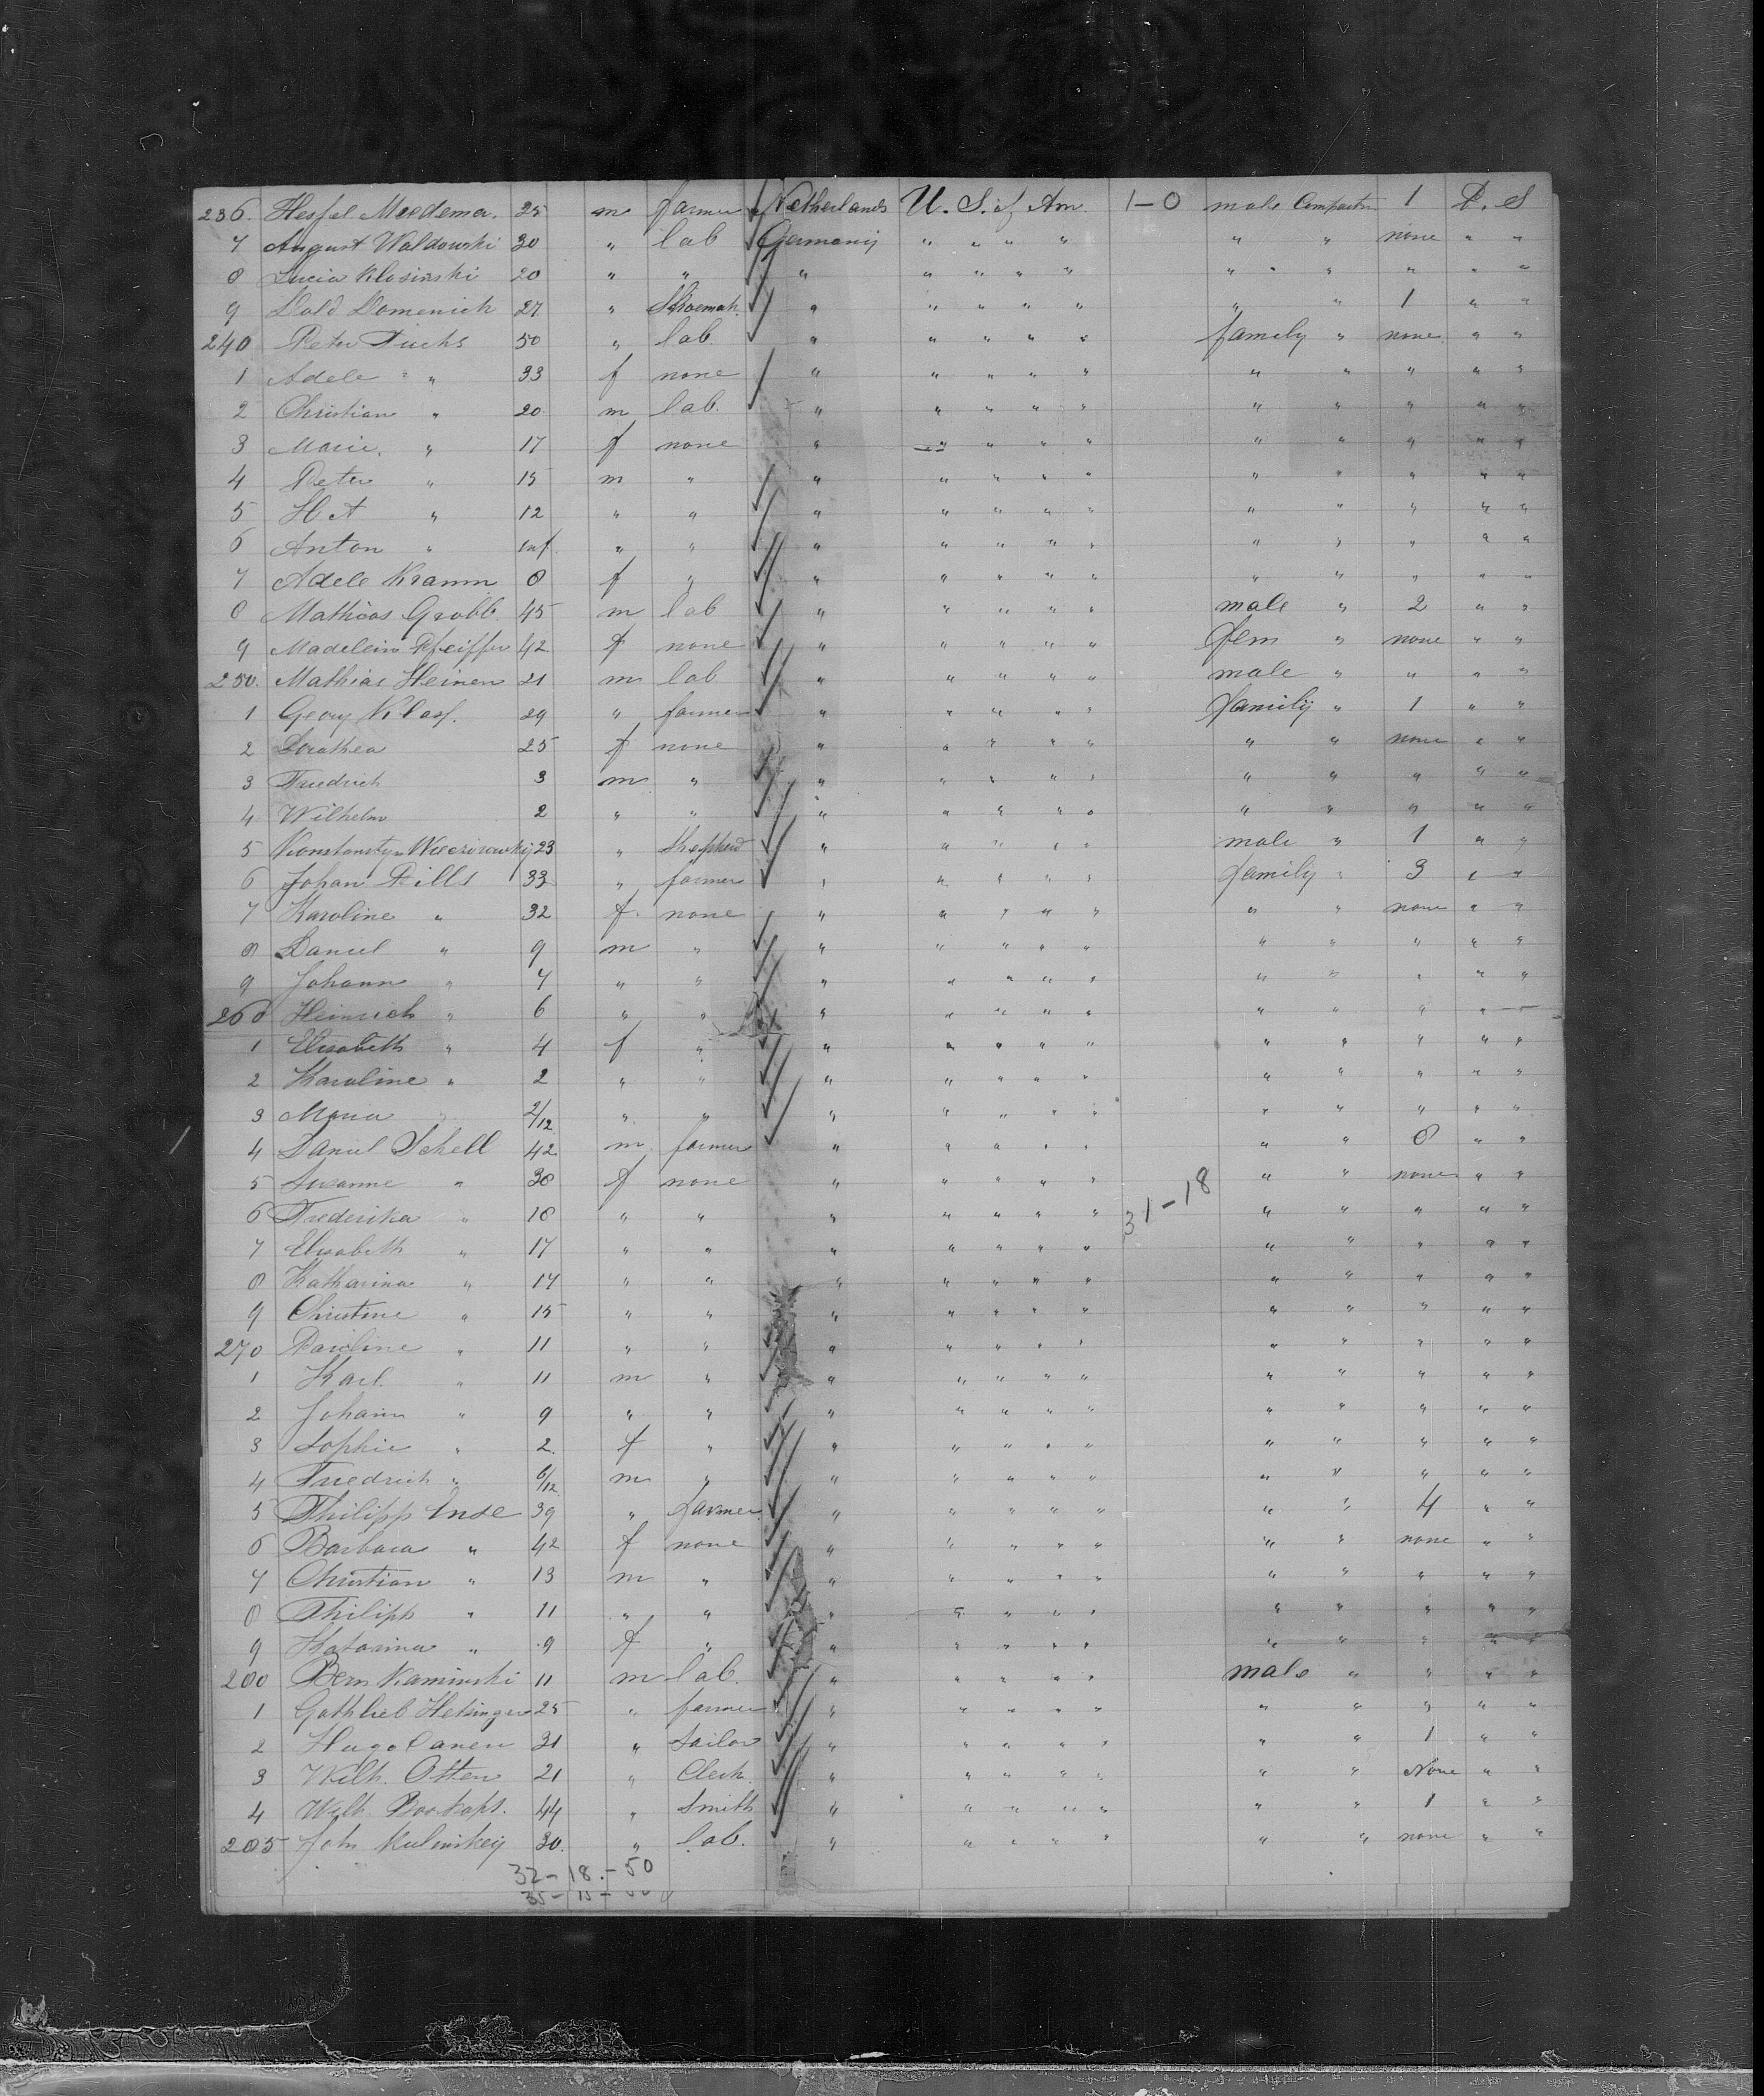 236. Hessel Meedema. 25 m farmer Netherlands U. S. of Am. 1-0 male Compartm 1 D. S
7 August Waldowski 30 " lab Germany " " " " " " none " "
8 Lucia Klosinski 20 " " " " " " " " " " " "
9 Dold Domenich 27 " Shoemak. " " " " " " " 1 " "
240 Peter Fuchs 50 " lab. " " " " " family " none " "
1 Adele " " 33 f none " " " " " " " " " "
2 Christian " 20 m lab. " " " " " " " " " "
3 Marie. " 17 f none " " " " " " " " " "
4 Peter " 15 m " " " " " " " " " " "
5 " 12 " " " " " " " " " " " "
6 Anton " inf. " " " " " " " " " " " "
7 Adele Kramm 8 f " " " " " " " " " " "
8 Mathias Grobb. 45 m lab " " " " " male " 2 " "
9 Madelein Pfeiffer 42 f none " " " " " fem " none " "
250. Mathias Heinen 21 m lab " " " " " male " " " "
1 Georg Klass. 29 " farmer " " " " " family " 1 " "
2 Dorothea 25 f none " " " " " " " none " "
3 Friedrich 3 m " " " " " " " " " " "
4 Wilhelm 2 " " " " " " " " " " " "
5 23 " Shepherd " " " " " male " 1 " "
6 Johan Dills 33 " farmer " " " " " family " 3 " "
7 Karoline " 32 f. none " " " " " " " none " "
8 Daniel " 9 m " " " " " " " " " " "
9 Johann " 7 " " " " " " " " " " " "
260 Heinrich " 6 " " " " " " " " " " " "
1 Elisabeth " 4 f " " " " " " " " " " "
2 Karoline " 2 " " " " " " " " " " " "
3 Maria 2/12 " " " " " " " " " " " "
4 Daniel Schell 42 m farmer " " " " " " " 8 " "
5 Susanne " 38 f none " " " " " 31-18 " " none " "
6 Frederika " 18 " " " " " " " " " " " "
7 Elisabeth " 17 " " " " " " " " " " " "
8 Katharina " 17 " " " " " " " " " " " "
9 Christine " 15 " " " " " " " " " " " "
270 Pauline " 11 " " " " " " " " " " " "
1 Karl " 11 m " " " " " " " " " " "
2 Johann " 9 " " " " " " " " " " " "
3 Sophie " 2. f " " " " " " " " " " "
4 Friedrich " 6/12. m " " " " " " " " " " "
5 Philipp Ende 39 " farmer. " " " " " " " 4 " "
6 Barbara " 42 f none " " " " " " " none " "
7 Christian " 13 m " " " " " " " " " " "
8 Philipp " 11 " " " " " " " " " " " "
9 Katarina " 9 f " " " " " " " " " " "
280 Bern Kaminski 11 m lab. " " " " " male " " " "
1 Gottlieb Hetsinger 25 " farmer " " " " " " " " " "
2 Hugo Canen 31 " Sailor " " " " " " " 1 " "
3 Wilh. Otten 21 " Clerk. " " " " " " " None " "
4 Wilh. 44 " Smith " " " " " " " 1 " "
285 John Kulinskey 30. " lab. " " " " " " " none " "
32-18.-50